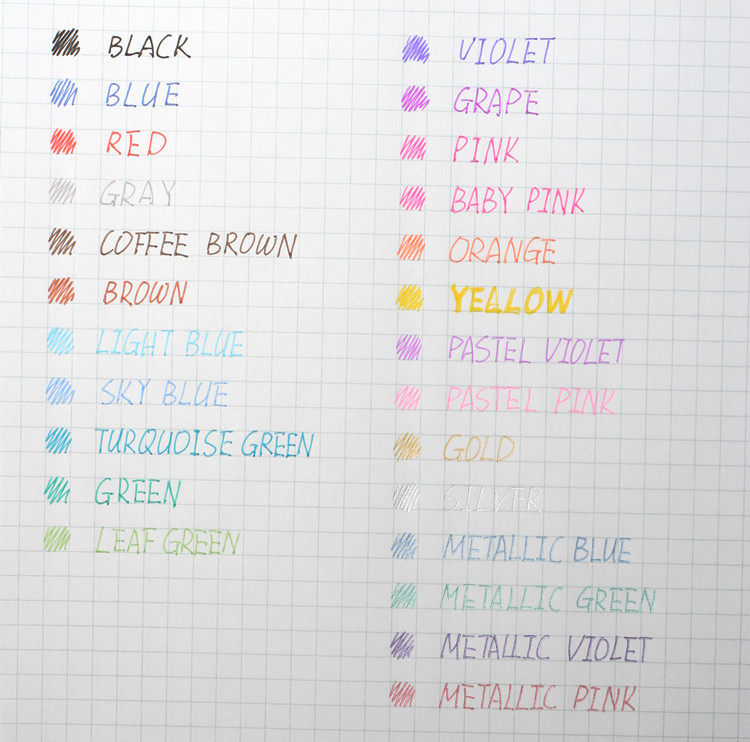 BLACK
BLUE
RED
GRAY
COFFEE BROWN
BROWN
LIGHT BLUE
SKY BLUE
TURQUOISE GREEN
GREEN
LEAF GREEN
VIOLET
GRAPE
PINK
BABY PINK
ORANGE
YELLOW
PASTEL VIOLET
PASTEL PINK
GOLD
SILVER
METALLIC BLUE
METALLIC GREEN
METALLIC VIOLET
METALLIC PINK